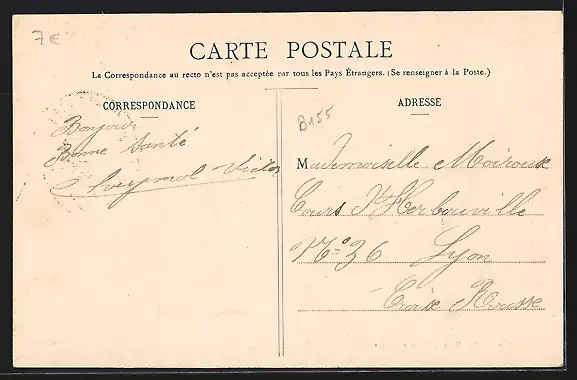 7€
CARTE POSTALE
La Correspondance au recto n'est pas acceptée par tous les Pays Étrangers. (Se renseigner à la Poste.)
CORRESPONDANCE
ADRESSE
B155
Bonjour
Bonne Santé
Victor
Mademoiselle Moiroux
Cours d'Herbouville
N° 36 Lyon
Croix Rousse